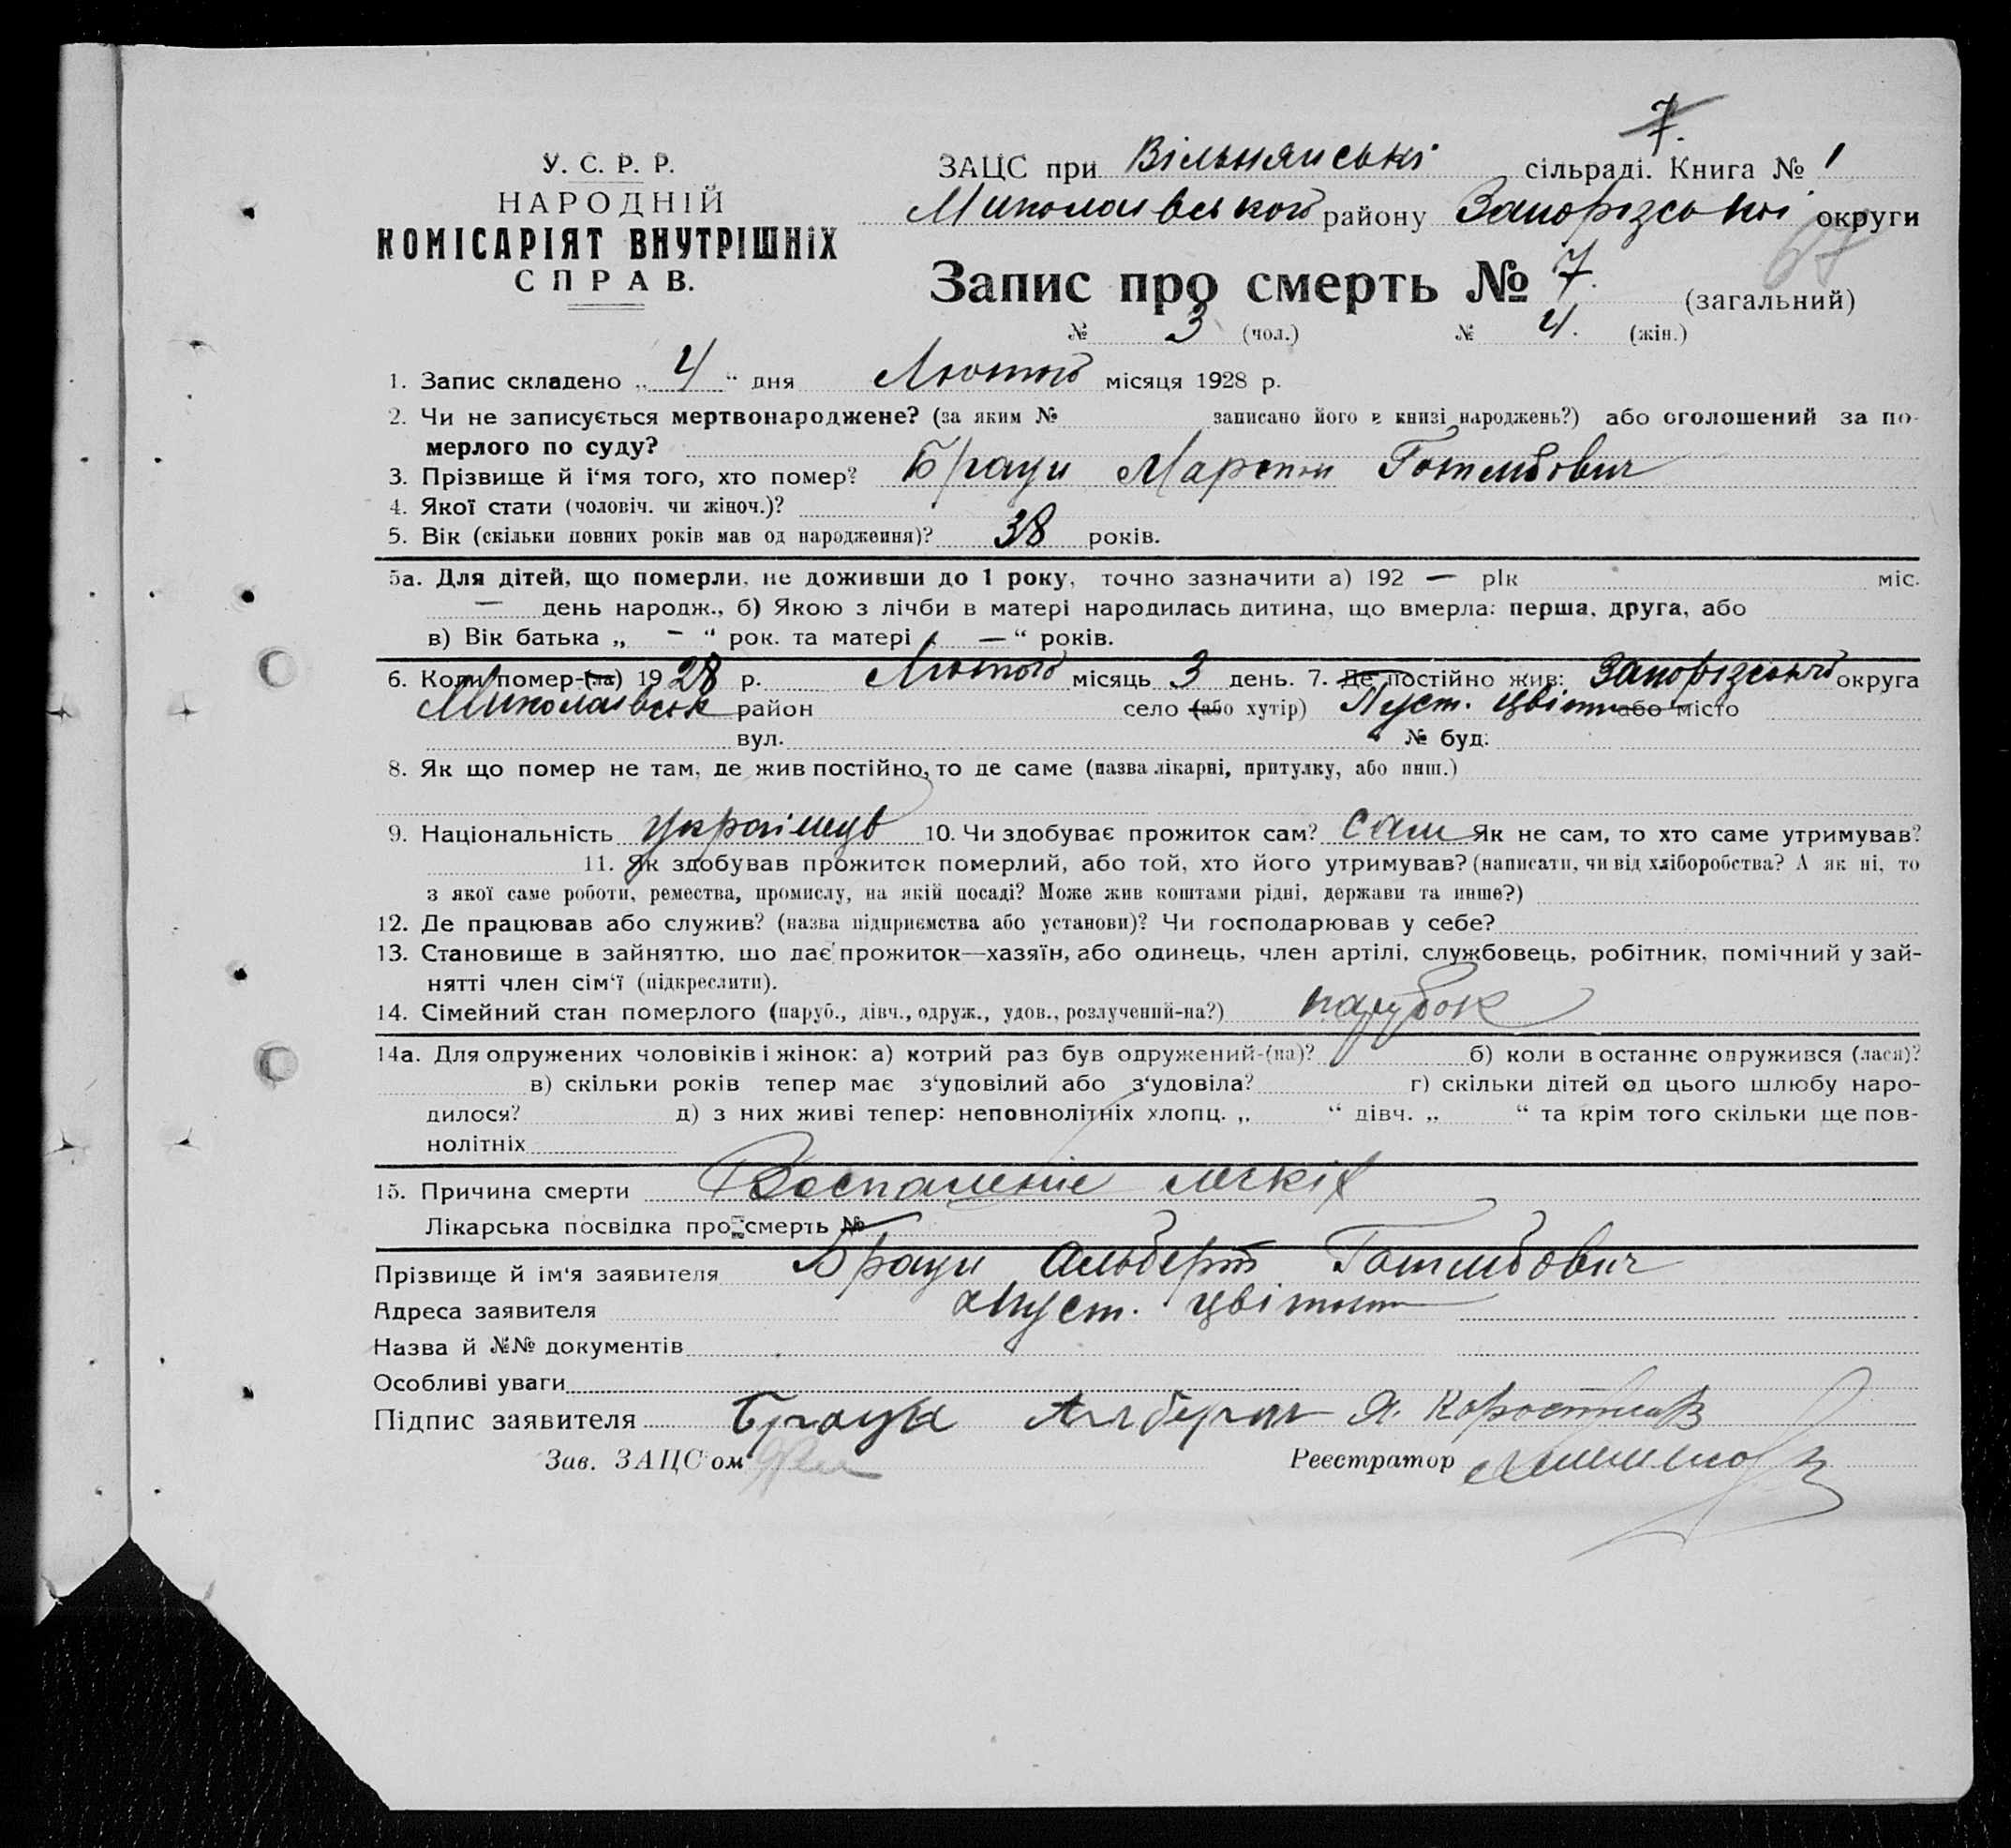 7.
У. С. Р. Р.
НАРОДНІЙ
КОМІСАРІЯТ ВНУТРІШНІХ
СПРАВ.
ЗАЦС при Вільнянські сільраді. Книга № 1
Миколаївського району Запорізської округи
67
Запис про смерть № 7. (загальний)
№ 3 (чол.) № 4. (жін.)
1. Запис складено „ 4 “ дня Лютого місяця 1928 р.
2. Чи не записується мертвонароджене? (за яким № записано його в книзі народжень?) або оголошений за по-
мерлого по суду?
3. Прізвище й і‘мя того, хто помер? Брауи Готлибович
4. Якої стати (чоловіч. чи жіноч.)?
5. Вік (скільки повних років мав од народження)? 38 років.
5а. Для дітей, що померли, не доживши до 1 року, точно зазначити а) 192 — рік міс.
— день народж., б) Якою з лічби в матері народилась дитина, що вмерла: перша, друга, або
в) Вік батька „ — “ рок. та матері „ — “ років.
6. Коли помер-(ла) 1928 р. Лютого місяць 3 день. 7. Де постійно жив: Запорізського округа
Миколаївськ район село (або хутір) Пуст. або місто
вул. № буд.
8. Як що помер не там, де жив постійно, то де саме (назва лікарні, притулку, або инш.)
9. Національність 10. Чи здобуває прожиток сам? сам Як не сам, то хто саме утримував?
11. Як здобував прожиток померлий, або той, хто його утримував? (написати, чи від хліборобства? А як ні, то
з якої саме роботи, ремества, промислу, на якій посаді? Може жив коштами рідні, держави та инше?)
12. Де працював або служив? (назва підприємства або установи)? Чи господарював у себе?
13. Становище в зайняттю, що дає прожиток—хазяїн, або одинець, член артілі, службовець, робітник, помічний у зай-
нятті член сім‘ї (підкреслити).
14. Сімейний стан померлого (паруб., дівч., одруж., удов., розлучений-на?) парубок
14а. Для одружених чоловіків і жінок: а) котрий раз був одружений-(на)? б) коли востаннє одружився (лася)?
в) скільки років тепер має з‘удовілий або з‘удовіла? г) скільки дітей од цього шлюбу наро-
дилося? д) з них живі тепер: неповнолітніх хлопц. „ “ дівч. „ “ та крім того скільки ще пов-
нолітніх
15. Причина смерти Воспаленіе легкіх
Лікарська посвідка про смерть №
Прізвище й ім‘я заявителя Брауи Альберт Готлибович
Адреса заявителя Пуст.
Назва й №№ документів
Особливі уваги
Підпис заявителя Браун Алберт Я.
Зав. ЗАЦС‘ом Реєстратор